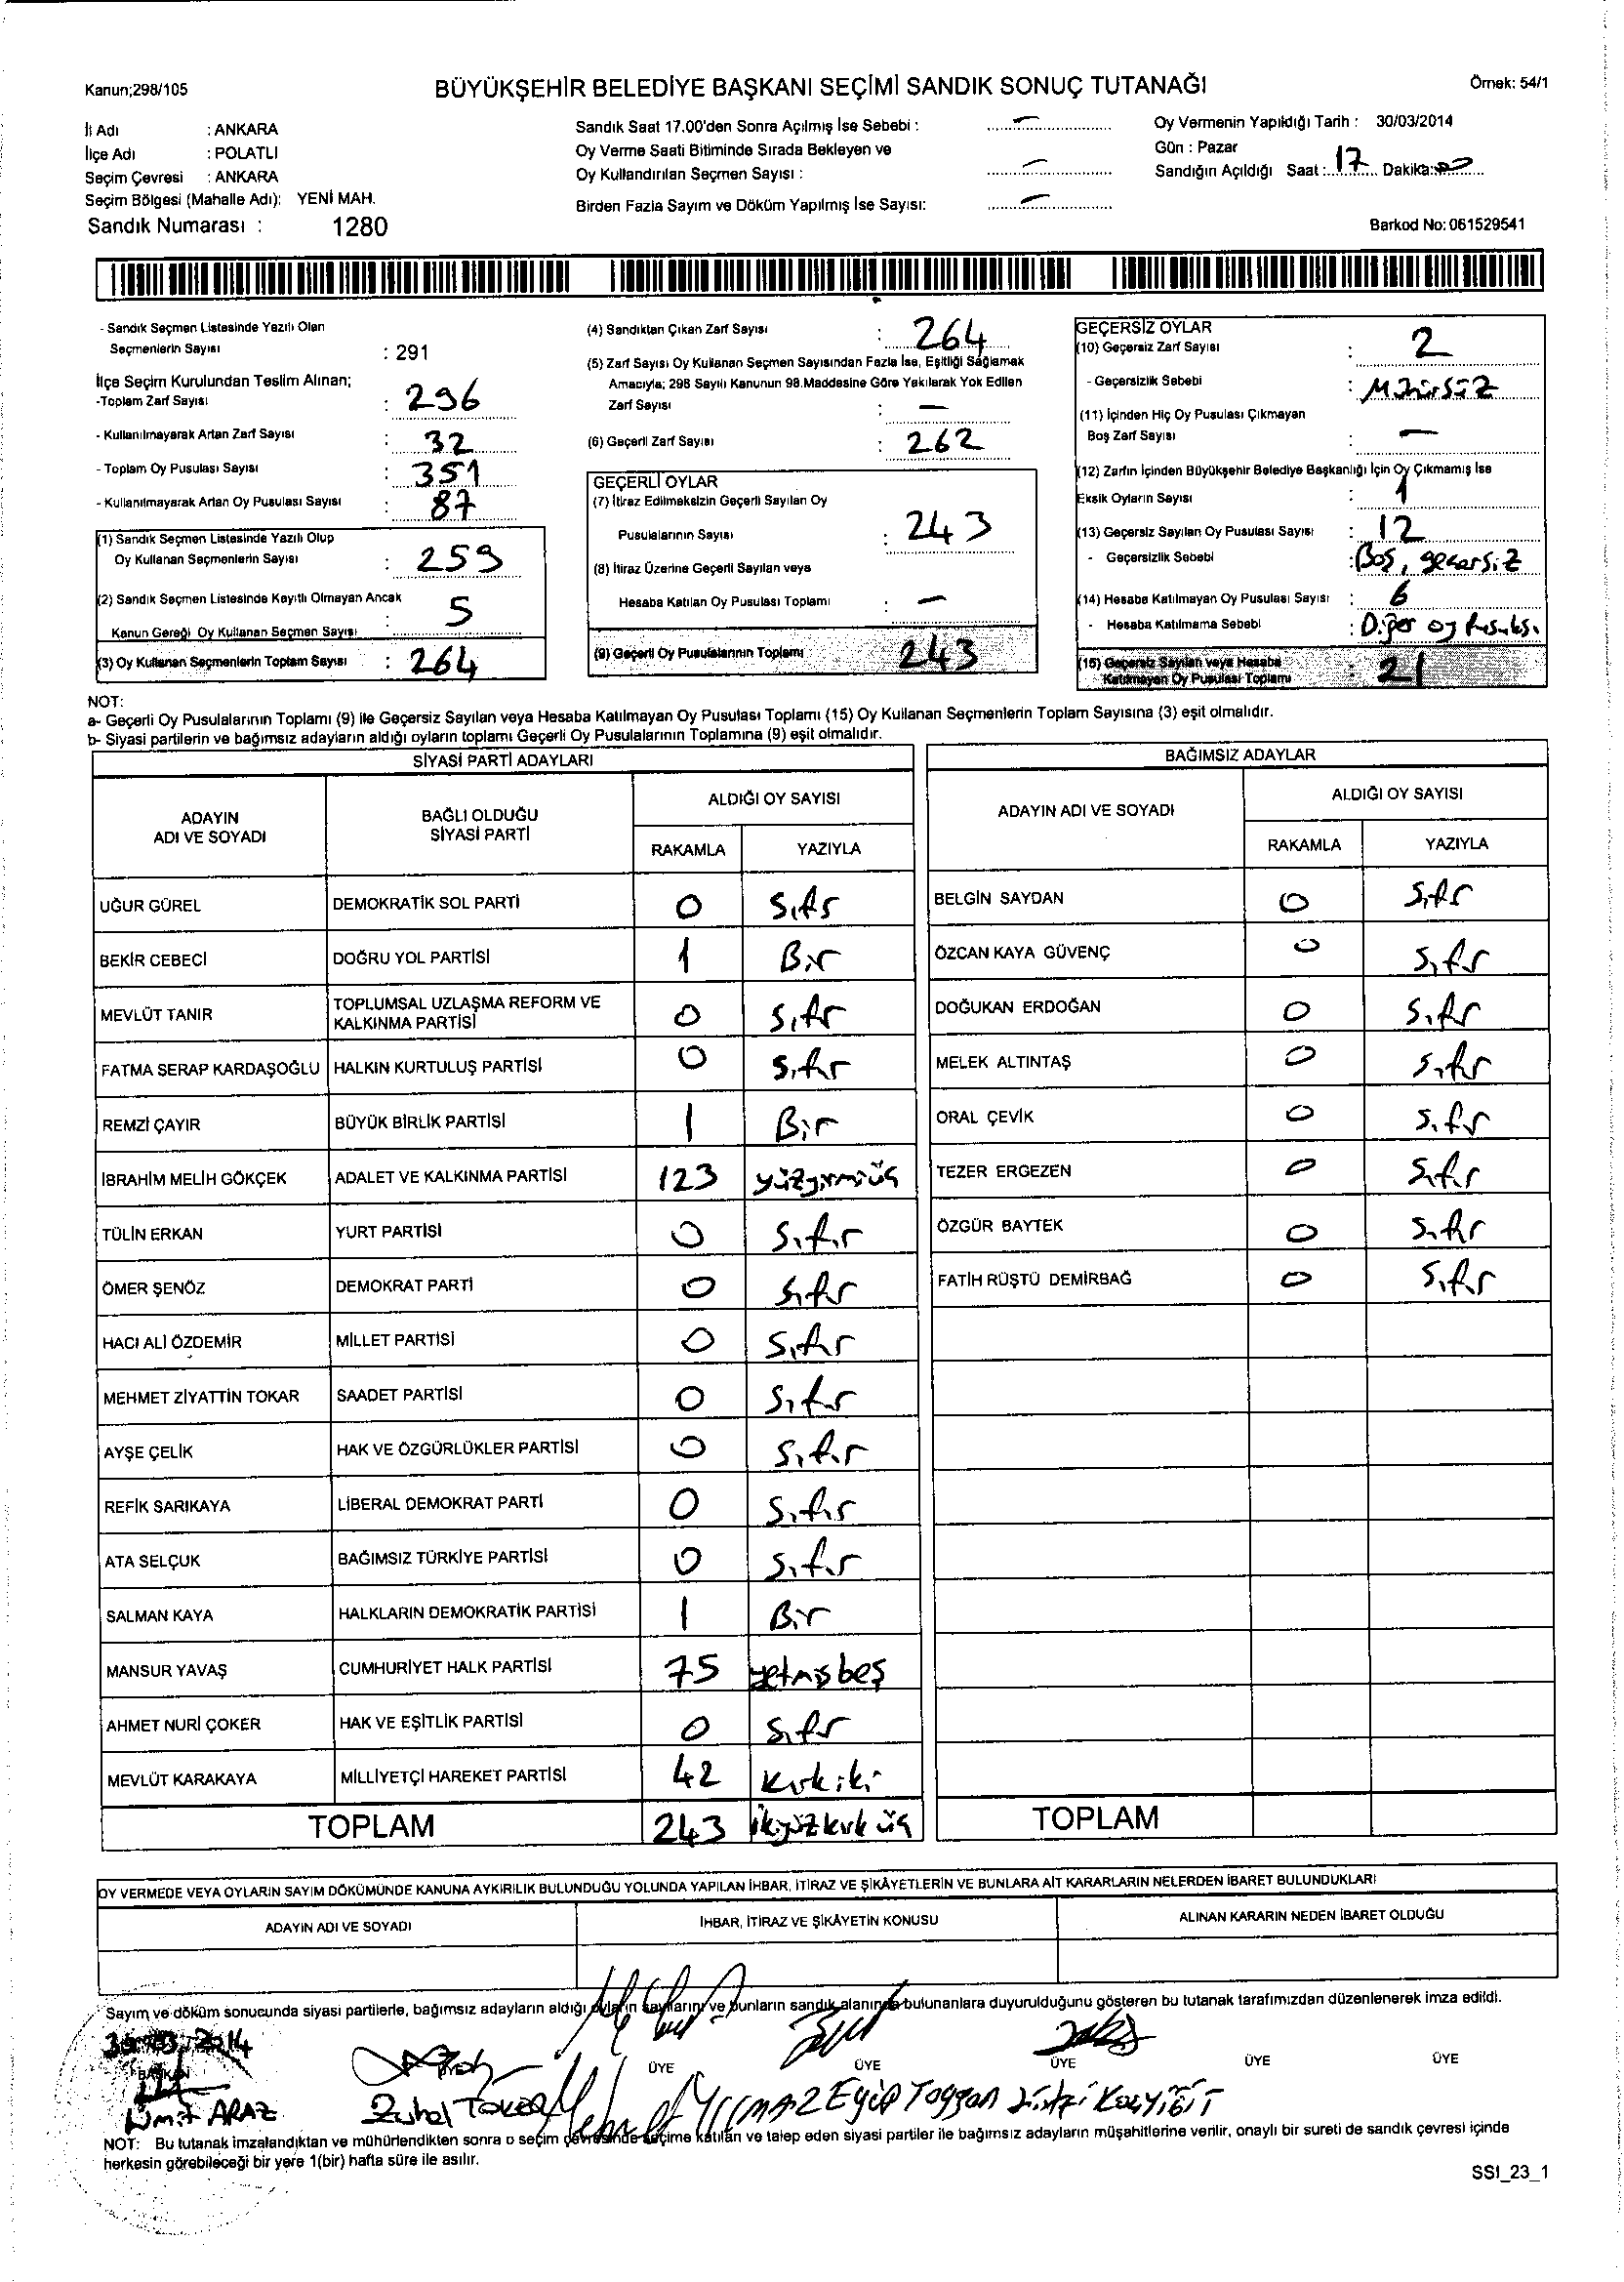 Kanun;298/105
BÜYÜKŞEHİR BELEDİYE BAŞKANI SEÇİMİ SANDIK SONUÇ TUTANAĞI
Örnek: 54/1
İli Adı : ANKARA
İlçe Adı : POLATLI
Seçim Çevresi : ANKARA
Seçim Bölgesi (Mahalle Adı): YENİ MAH.
Sandık Numarası : 1280
Sandık Saat 17.00'den Sonra Açılmış İse Sebebi : —
Oy Verme Saati Bitiminde Sırada Bekleyen ve
Oy Kullandırılan Seçmen Sayısı : —
Birden Fazla Sayım ve Döküm Yapılmış İse Sayısı: —
Oy Vermenin Yapıldığı Tarih : 30/03/2014
Gün : Pazar
Sandığın Açıldığı Saat : 17 Dakika: 00
Barkod No: 061529541
- Sandık Seçmen Listesinde Yazılı Olan
Seçmenlerin Sayısı : 291
İlçe Seçim Kurulundan Teslim Alınan;
-Toplam Zarf Sayısı : 296
- Kullanılmayarak Artan Zarf Sayısı : 32
- Toplam Oy Pusulası Sayısı : 351
- Kullanılmayarak Artan Oy Pusulası Sayısı : 87
(1) Sandık Seçmen Listesinde Yazılı Olup
Oy Kullanan Seçmenlerin Sayısı : 259
(2) Sandık Seçmen Listesinde Kayıtlı Olmayan Ancak
Kanun Gereği Oy Kullanan Seçmen Sayısı : 5
(3) Oy Kullanan Seçmenlerin Toplam Sayısı : 264
(4) Sandıktan Çıkan Zarf Sayısı : 264
(5) Zarf Sayısı Oy Kullanan Seçmen Sayısından Fazla İse, Eşitliği Sağlamak
Amacıyla; 298 Sayılı Kanunun 98.Maddesine Göre Yakılarak Yok Edilen
Zarf Sayısı : —
(6) Geçerli Zarf Sayısı : 262
GEÇERLİ OYLAR
(7) İtiraz Edilmeksizin Geçerli Sayılan Oy
Pusulalarının Sayısı : 243
(8) İtiraz Üzerine Geçerli Sayılan veya
Hesaba Katılan Oy Pusulası Toplamı : —
(9) Geçerli Oy Pusulalarının Toplamı : 243
GEÇERSİZ OYLAR
(10) Geçersiz Zarf Sayısı : 2
- Geçersizlik Sebebi : Mühürsüz
(11) İçinden Hiç Oy Pusulası Çıkmayan
Boş Zarf Sayısı : —
(12) Zarfın İçinden Büyükşehir Belediye Başkanlığı İçin Oy Çıkmamış İse
Eksik Oyların Sayısı : 1
(13) Geçersiz Sayılan Oy Pusulası Sayısı : 12
- Geçersizlik Sebebi : Boş, geçersiz
(14) Hesaba Katılmayan Oy Pusulası Sayısı : 6
- Hesaba Katılmama Sebebi : Diğer oy Pusulası
(15) Geçersiz Sayılan veya Hesaba
Katılmayan Oy Pusulası Toplamı : 21
NOT:
a- Geçerli Oy Pusulalarının Toplamı (9) ile Geçersiz Sayılan veya Hesaba Katılmayan Oy Pusulası Toplamı (15) Oy Kullanan Seçmenlerin Toplam Sayısına (3) eşit olmalıdır.
b- Siyasi partilerin ve bağımsız adayların aldığı oyların toplamı Geçerli Oy Pusulalarının Toplamına (9) eşit olmalıdır.
SİYASİ PARTİ ADAYLARI
ADAYIN ADI VE SOYADI | BAĞLI OLDUĞU SİYASİ PARTİ | ALDIĞI OY SAYISI
RAKAMLA | YAZIYLA
UĞUR GÜREL DEMOKRATİK SOL PARTİ 0 Sıfır
BEKİR CEBECİ DOĞRU YOL PARTİSİ 1 Bir
MEVLÜT TANIR TOPLUMSAL UZLAŞMA REFORM VE KALKINMA PARTİSİ 0 Sıfır
FATMA SERAP KARDAŞOĞLU HALKIN KURTULUŞ PARTİSİ 0 Sıfır
REMZİ ÇAYIR BÜYÜK BİRLİK PARTİSİ 1 Bir
İBRAHİM MELİH GÖKÇEK ADALET VE KALKINMA PARTİSİ 123 yüzyirmiüç
TÜLİN ERKAN YURT PARTİSİ 0 Sıfır
ÖMER ŞENÖZ DEMOKRAT PARTİ 0 Sıfır
HACI ALİ ÖZDEMİR MİLLET PARTİSİ 0 Sıfır
MEHMET ZİYATTİN TOKAR SAADET PARTİSİ 0 Sıfır
AYŞE ÇELİK HAK VE ÖZGÜRLÜKLER PARTİSİ 0 Sıfır
REFİK SARIKAYA LİBERAL DEMOKRAT PARTİ 0 Sıfır
ATA SELÇUK BAĞIMSIZ TÜRKİYE PARTİSİ 0 Sıfır
SALMAN KAYA HALKLARIN DEMOKRATİK PARTİSİ 1 Bir
MANSUR YAVAŞ CUMHURİYET HALK PARTİSİ 75 yetmişbeş
AHMET NURİ ÇOKER HAK VE EŞİTLİK PARTİSİ 0 Sıfır
MEVLÜT KARAKAYA MİLLİYETÇİ HAREKET PARTİSİ 42 Kırkiki
TOPLAM 243 ikiyüzkırk üç
BAĞIMSIZ ADAYLAR
ADAYIN ADI VE SOYADI | ALDIĞI OY SAYISI
RAKAMLA | YAZIYLA
BELGİN SAYDAN 0 Sıfır
ÖZCAN KAYA GÜVENÇ 0 Sıfır
DOĞUKAN ERDOĞAN 0 Sıfır
MELEK ALTINTAŞ 0 Sıfır
ORAL ÇEVİK 0 Sıfır
TEZER ERGEZEN 0 Sıfır
ÖZGÜR BAYTEK 0 Sıfır
FATİH RÜŞTÜ DEMİRBAĞ 0 Sıfır
TOPLAM
OY VERMEDE VEYA OYLARIN SAYIM DÖKÜMÜNDE KANUNA AYKIRILIK BULUNDUĞU YOLUNDA YAPILAN İHBAR, İTİRAZ VE ŞİKÂYETLERİN VE BUNLARA AİT KARARLARIN NELERDEN İBARET BULUNDUKLARI
ADAYIN ADI VE SOYADI | İHBAR, İTİRAZ VE ŞİKÂYETİN KONUSU | ALINAN KARARIN NEDEN İBARET OLDUĞU
Sayım ve döküm sonucunda siyasi partilerle, bağımsız adayların aldığı oyların sayılarını ve bunların sandık alanında bulunanlara duyurulduğunu gösteren bu tutanak tarafımızdan düzenlenerek imza edildi.
30.03.2014
BAŞKAN ÜYE ÜYE ÜYE ÜYE ÜYE
Ümit ARAZ Zuhal YILMAZ Eyüp Toygan
NOT: Bu tutanak imzalandıktan ve mühürlendikten sonra o seçim çevresinde seçime katılan ve talep eden siyasi partiler ile bağımsız adayların müşahitlerine verilir, onaylı bir sureti de sandık çevresi içinde
herkesin görebileceği bir yere 1(bir) hafta süre ile asılır.
SSI_23_1